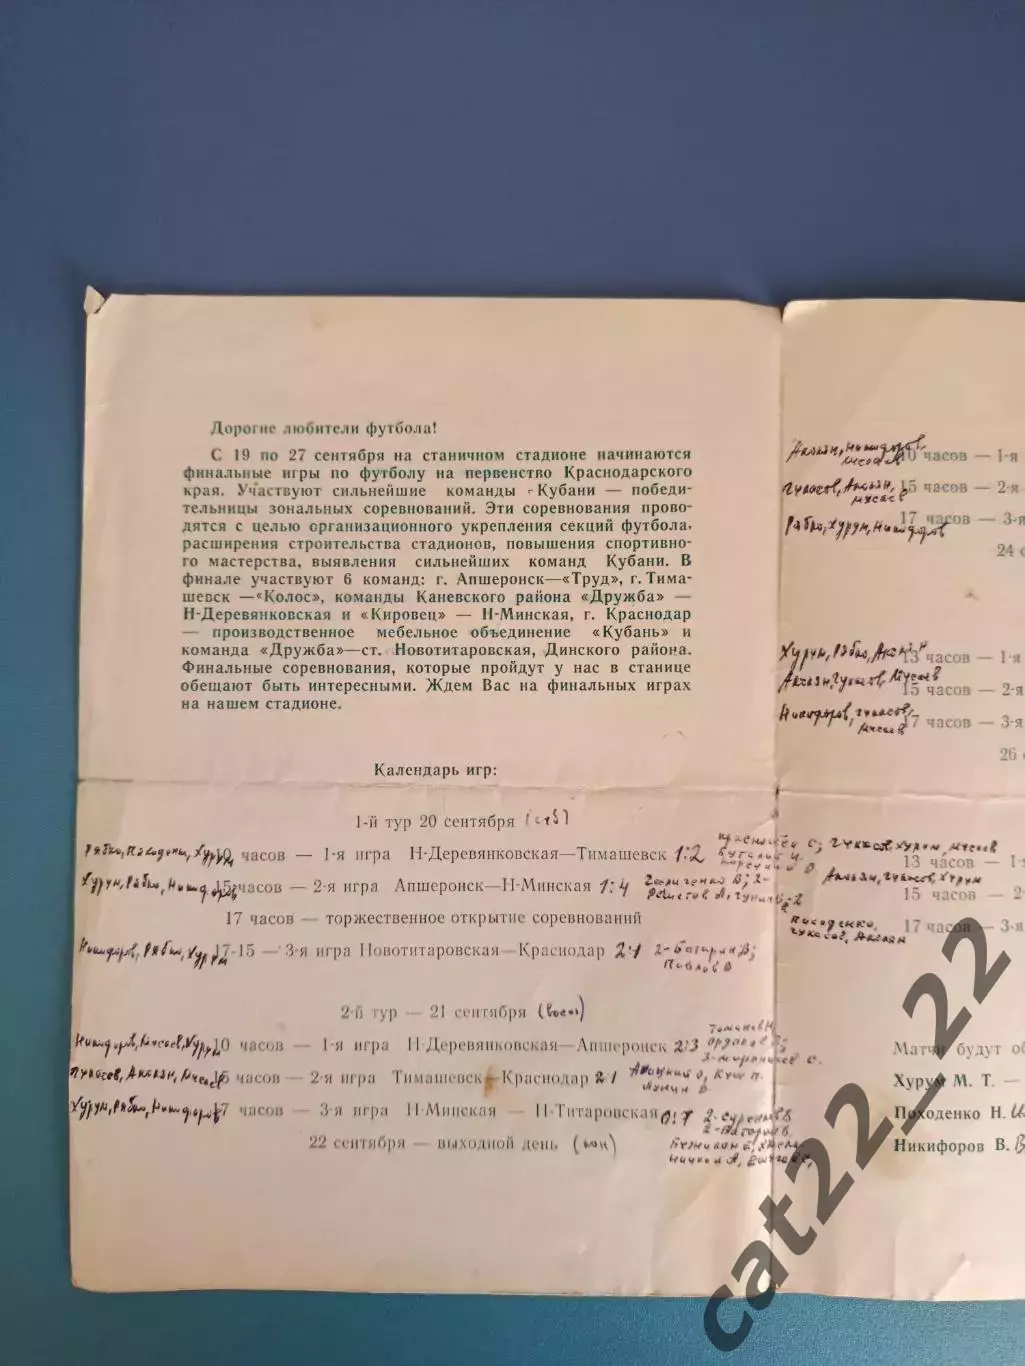 Дорогие любители футбола!
С 19 по 27 сентября на станичном стадионе начинаются
финальные игры по футболу на первенство Краснодарского
края. Участвуют сильнейшие команды Кубани — победи-
тельницы зональных соревнований. Эти соревнования прово-
дятся с целью организационного укрепления секций футбола,
расширения строительства стадионов, повышения спортивно-
го мастерства, выявления сильнейших команд Кубани. В
финале участвуют 6 команд: г. Апшеронск—«Труд», г. Тима-
шевск —«Колос», команды Каневского района «Дружба» —
Н-Деревянковская и «Кировец» — Н-Минская, г. Краснодар
— производственное мебельное объединение «Кубань» и
команда «Дружба»—ст. Новотитаровская, Динского района.
Финальные соревнования, которые пройдут у нас в станице
обещают быть интересными. Ждем Вас на финальных играх
на нашем стадионе.
Календарь игр:
1-й тур 20 сентября
Рябко, Походенко, Хурум 10 часов — 1-я игра Н-Деревянковская—Тимашевск 1:2
Хурум, Рябко, Никифоров 15 часов — 2-я игра Апшеронск—Н-Минская 1:4
17 часов — торжественное открытие соревнований
Никифоров, Рябко, Хурум 17-15 — 3-я игра Новотитаровская—Краснодар 2:1 2-Багарян В;
Павлов В
2-й тур — 21 сентября (воскр)
Никифоров, Мусаев, Хурум 10 часов — 1-я игра Н-Деревянковская—Апшеронск 2:3
Гукасов, Акопян, Мусаев 15 часов — 2-я игра Тимашевск—Краснодар 2:1
Хурум, Рябко, Никифоров 17 часов — 3-я игра Н-Минская — Н-Титаровская 0:7
22 сентября — выходной день (пон)
Акопян, Никифоров,
Мусаев 10 часов — 1-я
Гукасов, Акопян,
Мусаев 15 часов — 2-я
Рябко, Хурум, Никифоров 17 часов — 3-я
24 с
Хурум, Рябко, Акопян 13 часов — 1-я
Акопян, Гукасов, Мусаев 15 часов — 2-я
Никифоров, Гукасов,
Мусаев 17 часов — 3-я
26 с
Гукасов, Хурум, Мусаев
13 часов — 1-я
Акопян, Гукасов, Хурум
15 часов — 2-я
Походенко,
Гукасов, Акопян 17 часов — 3-я
Матчи будут об
Хурум М. Т. —
Походенко Н.
Никифоров В.
cat22_22